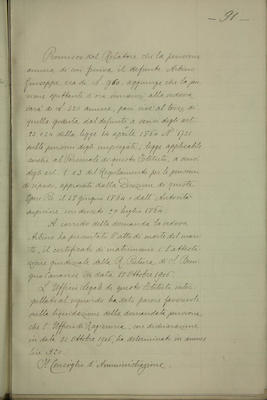 - 91 -
Premesso dal Relatore che la pensione
annua di cui fruiva il defunto
Giuseppe era di L. 960, aggiunge che la pen
sione spettante a ora alla vedova
sarà di L. 320 annue, pari cioè al terzo di
quella goduta dal defunto a senso degli art.
22 e 24 della legge 14 aprile 1864 N° 1731
sulle pensioni degli impiegati, legge applicabile
anche al Personale di questo Istituto, a senso
degli art. 1 e 3 del Regolamento per le pensioni
di riposo, approvato dalla Direzione di questa
Opera Pia il 28 giugno 1864 e dall'Autorità
superiore con decreto 29 luglio 1864.
A corredo della domanda la vedova
ha presentato l'atto di morte del mari
to, il certificato di matrimonio e l'attesta
zione giudiziale della R. Pretura di S.
Canavese in data 12 Ottobre 1906.
L'Ufficio legale di questo Istituto inter
pellato al riguardo ha dato parere favorevole
sulla liquidazione della domandata pensione,
che l'Ufficio di Ragioneria, con dichiarazione
in data 22 Ottobre 1906, ha determinato in annue
lire 320.
Il Consiglio d'Amministrazione